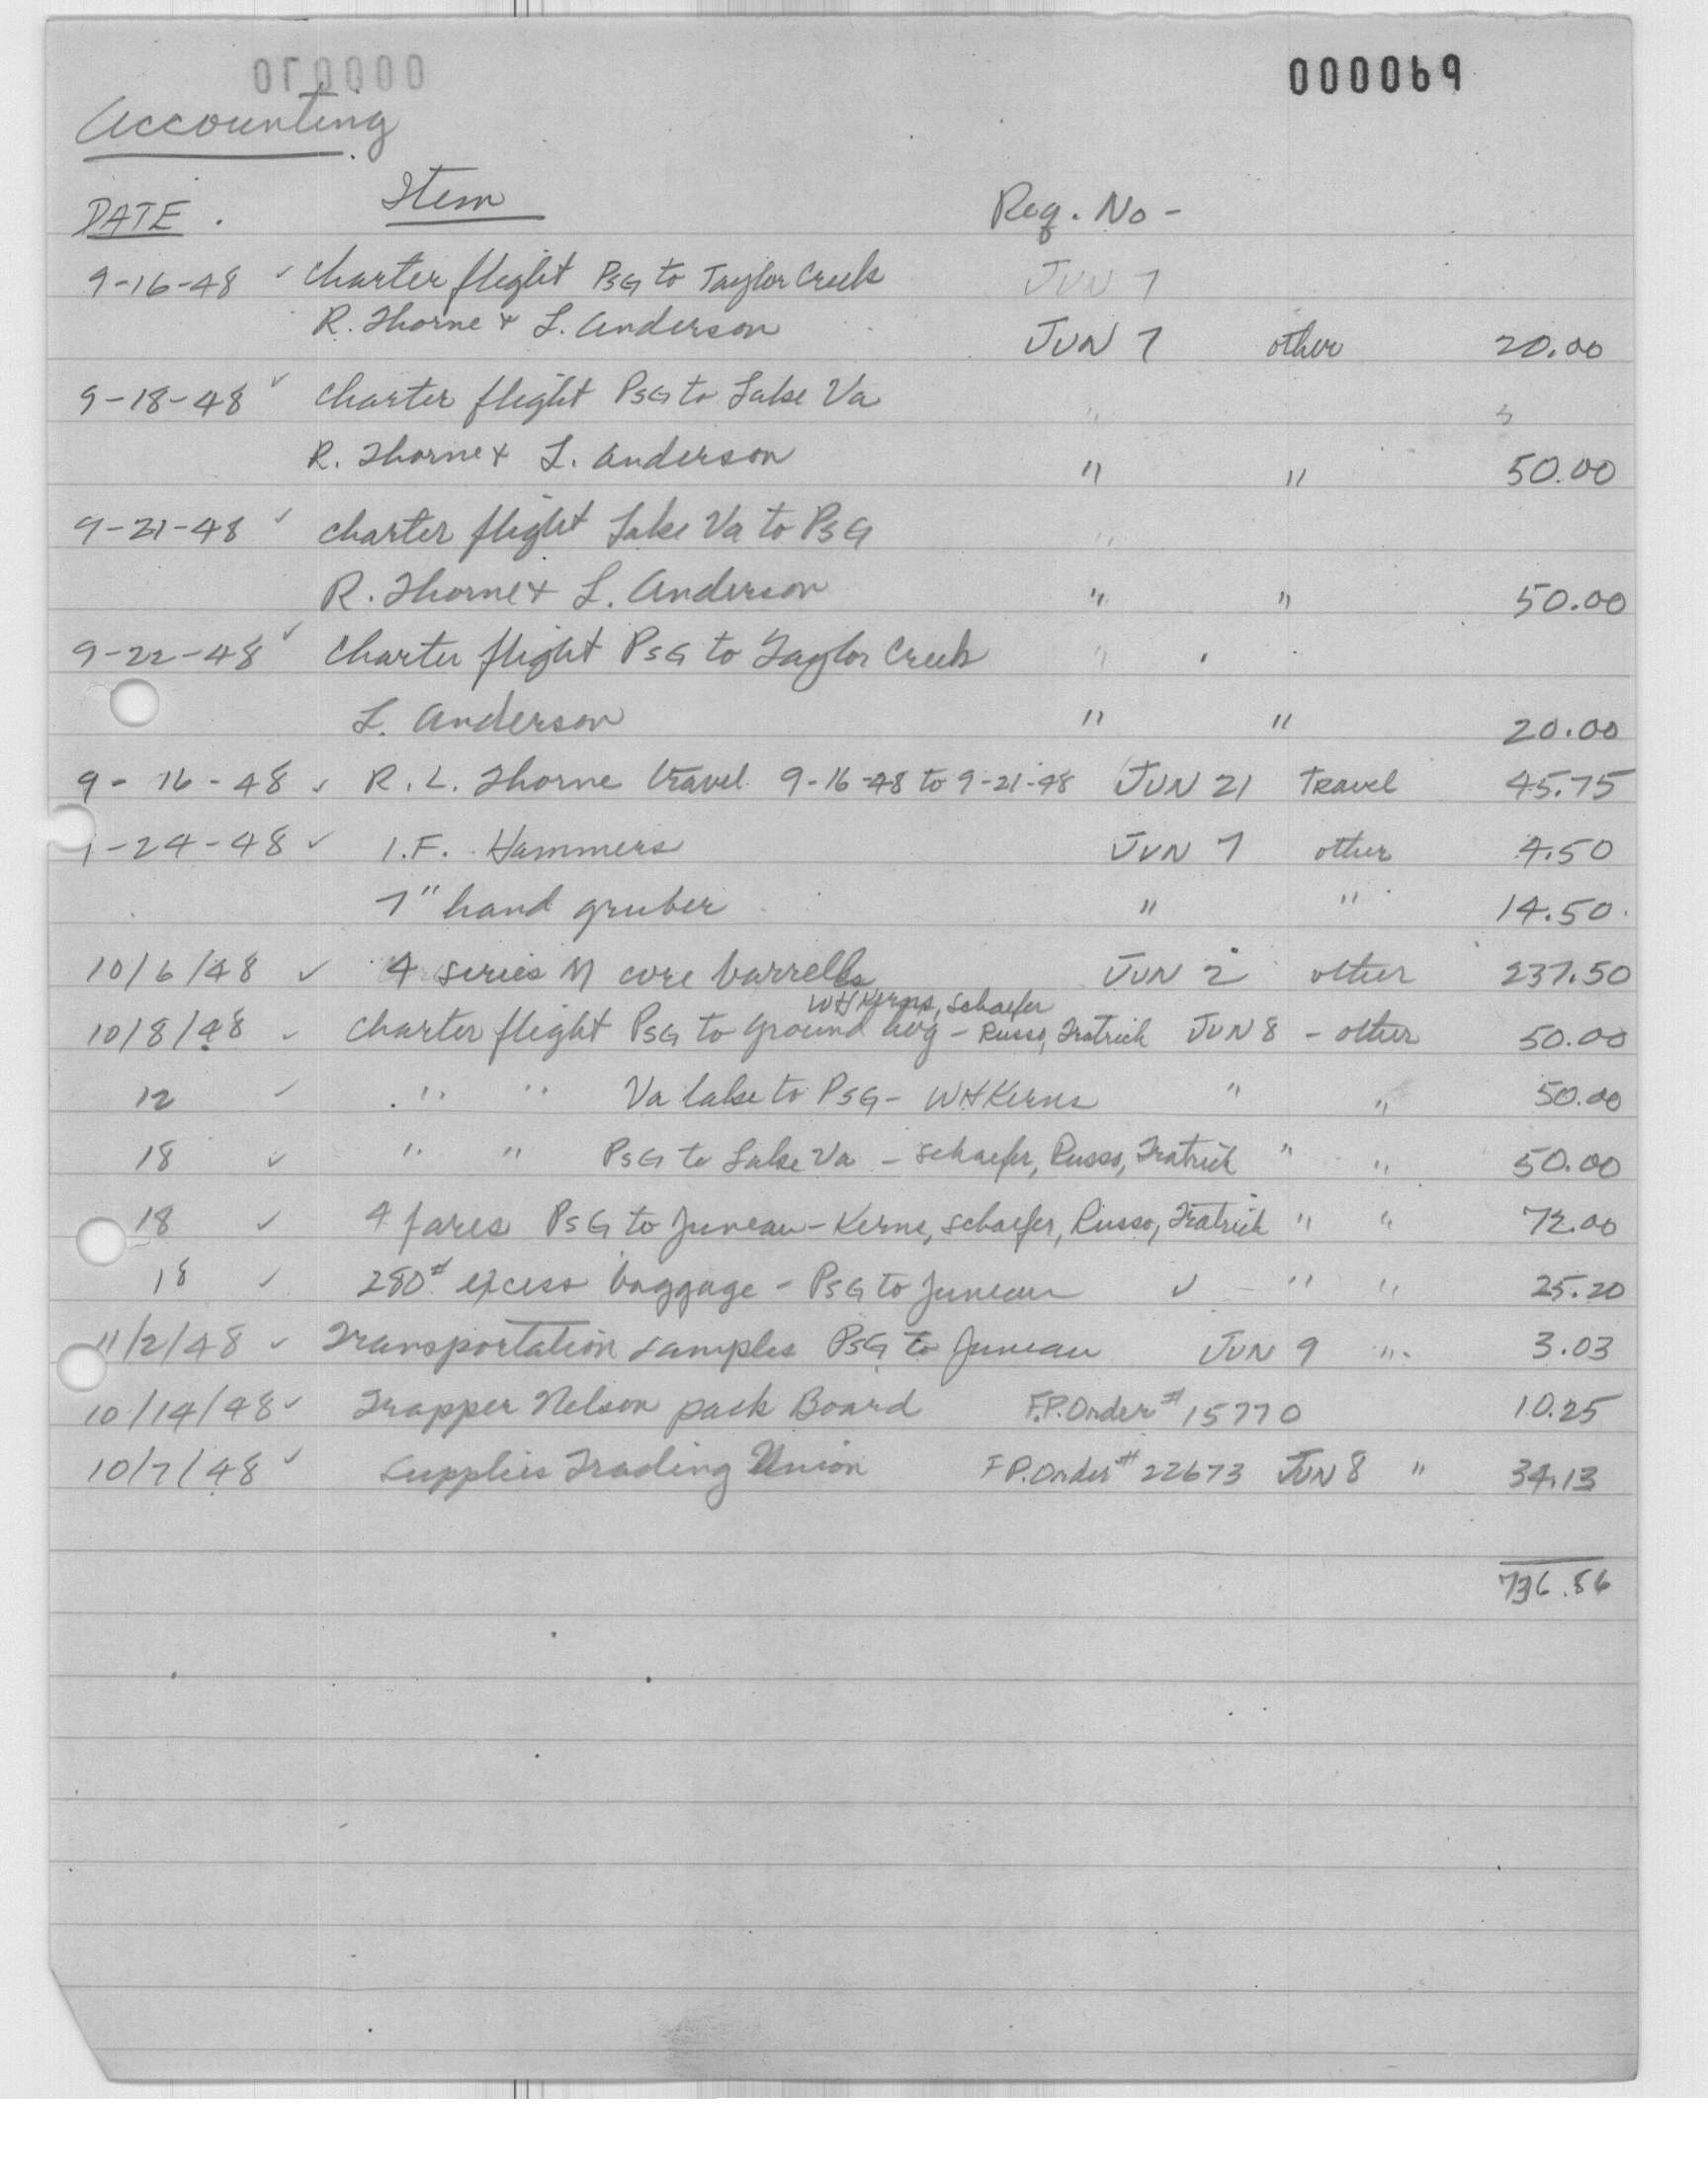 000069
Accounting
DATE. Item Req. No -
9-16-48 ✓ Charter flight PSG to Taylor Creek JUN 7
R. Thorne + L. Anderson JUN 7 other 20.00
9-18-48 ✓ Charter flight PSG to Lake Va "
R. Thorne + L. Anderson " " 50.00
9-21-48 ✓ charter flight Lake Va to PSG "
R. Thorne + L. Anderson " " 50.00
9-22-48 ✓ Charter flight PSG to Taylor Creek "
L. Anderson " " 20.00
9-16-48 ✓ R. L. Thorne travel 9-16-48 to 9-21-48 JUN 21 Travel 45.75
-24-48 ✓ I.F. Hammers JUN 7 other 4.50
7" hand gruber " " 14.50
10/6/48 ✓ 4 series M core barrells JUN 2 other 237.50
WH Kerns, Schaefer
10/8/48 ✓ Charter flight PSG to Ground Hog - Russo, Fratrich JUN 8 - other 50.00
12 ✓ " " Va lake to PSG - WH Kerns " " 50.00
18 ✓ " " PSG to Lake Va - Schaefer, Russo, Fratrich " " 50.00
18 ✓ 4 fares PSG to Juneau - Kerns, Schaefer, Russo, Fratrich " " 72.00
18 ✓ 280# excess baggage - PSG to Juneau ✓ " " 25.20
11/2/48 ✓ Transportation samples PSG to Juneau JUN 9 " 3.03
10/14/48 ✓ Trapper Nelson pack Board F.P. Order # 15770 10.25
10/7/48 ✓ Supplies Trading Union F P. Order # 22673 JUN 8 " 34.13
736.86